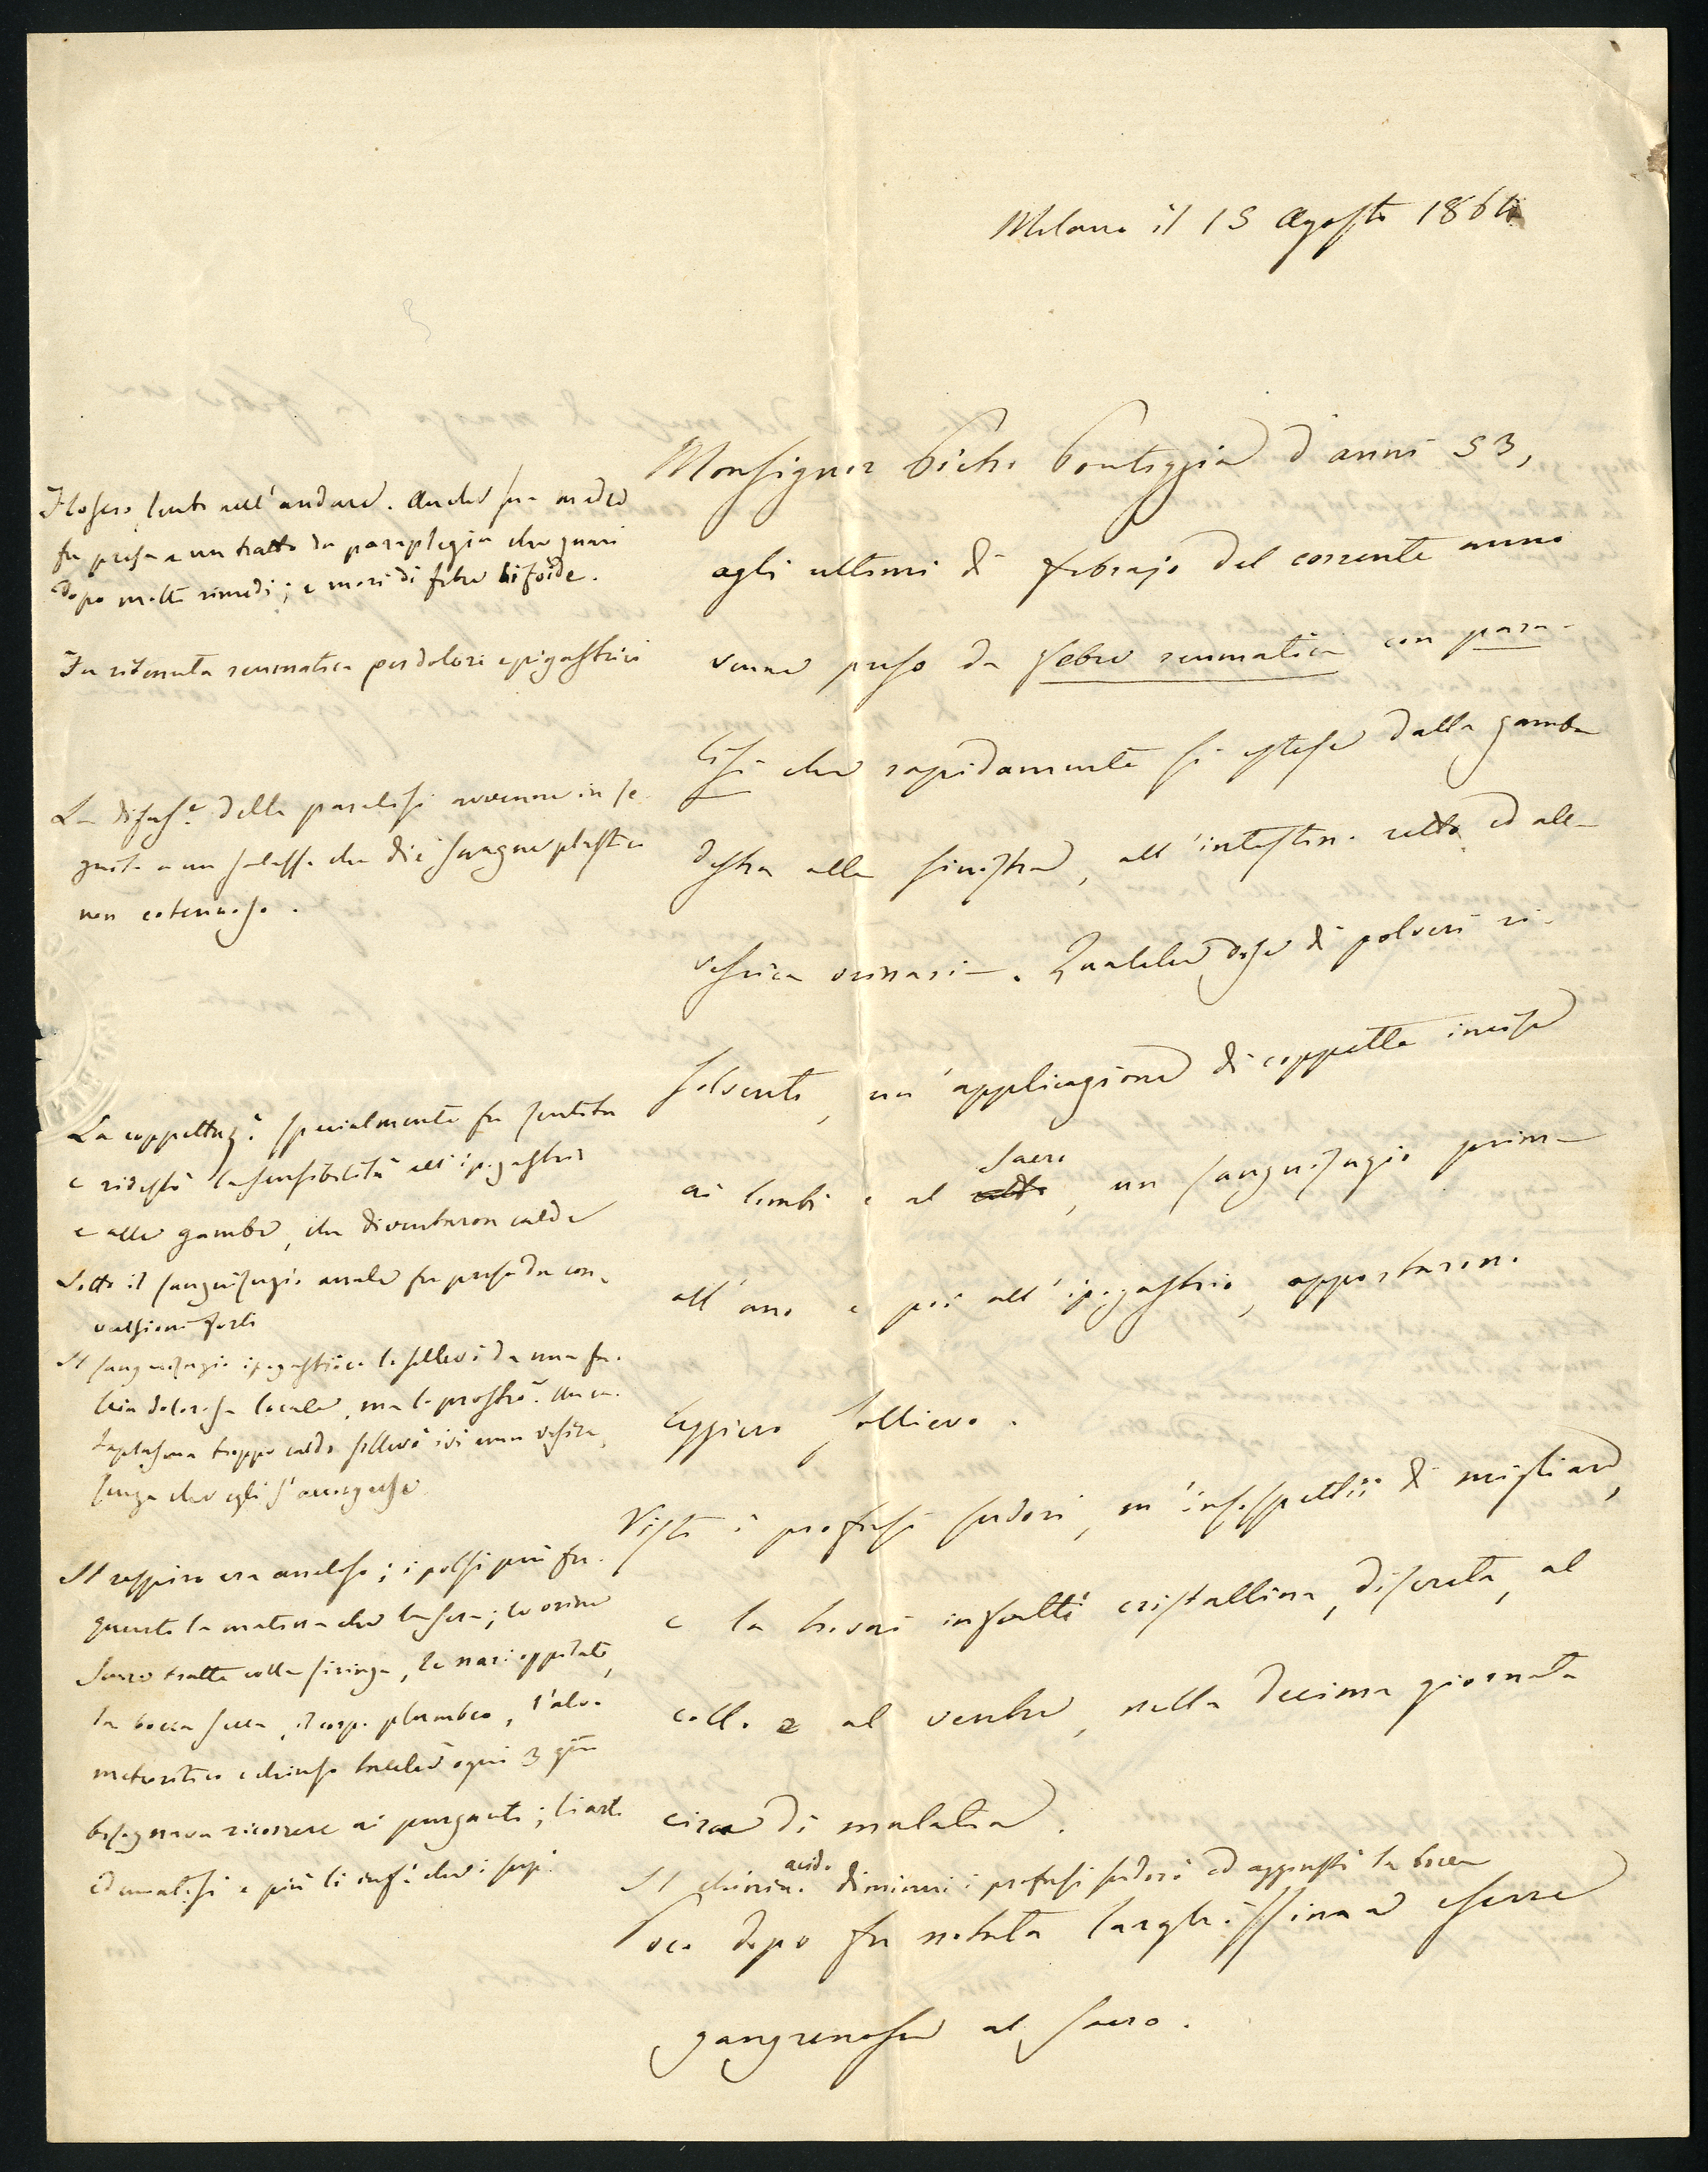 Milano il 15 Agosto 186
Monsignor Pietro Pontiggia d'anni 53,
agli ultimi di febrajo del corrente anno
venne preso da febre reumatica con para-
lisi che rapidamente si estese dalla gamba
destra alla sinistra, all'intestino retto ed alla
vescica orinaria. Qualche dose di polveri ri-
solventi, un'applicazione di coppette incise
ai lombi e al sacro, un sanguisugio prima
all'ano e poi all'ipogastrio, apportarono
leggiero sollievo.
Visti i profusi sudori, m'insospettii di migliare,
e la trovai infatti cristallina, discreta, al
collo e al ventre, nella decima giornata
circa di malatia.
Il chinino acido diminuì i profusi sudori ed aggiustò la bocca
Poco dopo fu notata larghissima escare
gangrenosa al sacro.
Floscio, lento nell'andare. Anche sua madre
fu presa a un tratto da paraplegia che guarì
dopo molti rimedi; e morì di febre tifoide.
Fu ritenuta reumatica per dolori epigastrici
La difuse. della paralisi avvenne in se-
guito a un salasso che diè sangue plastico
non cotennoso.
La coppettaz.e specialmente fu sentita
e ridestò la sensibilità all'ipogastrio
e alle gambe, che diventaron calde
Sotto il sanguisugio anale fu preso da con-
vulsioni forti
Il sanguisugio ipogastrico lo sollevò da una
dolorosa locale, ma lo prostrò. Un ca-
taplasma troppo caldo sollevò ivi una vescica,
senza che egli s'accorgesse
Il respiro era aneloso; i polsi più fre-
quenti la matina che la sera; le orine
tratte colla siringa, le nari oppilate,
la bocca secca, il corpo plumbeo, l'alvo
meteoritico e chiuso talchè ogni 3 gni
bisognava ricorrere ai purganti; li arti
edematosi e più li inf.i che i sup.i